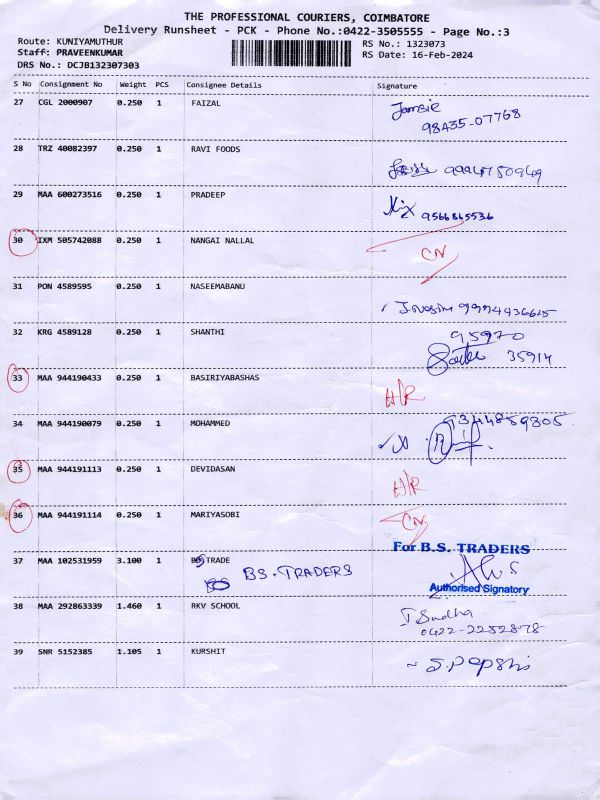 THE PROFESSIONAL COURIERS, COIMBATORE
Delivery Runsheet - PCK - Phone No.:0422-3505555 - Page No.:3
Route: KUNIYAMUTHUR RS No.: 1323073
Staff: PRAVEENKUMAR RS Date: 16-Feb-2024
DRS No.: DCJB132307303
S No Consignment No Weight PCS Consignee Details Signature
27 CGL 2000907 0.250 1 FAIZAL
98435-07768
28 TRZ 40082397 0.250 1 RAVI FOODS
29 MAA 600273516 0.250 1 PRADEEP
9566865536
30 IXM 505742088 0.250 1 NANGAI NALLAL CN
31 PON 4589595 0.250 1 NASEEMABANU
32 KRG 4589128 0.250 1 SHANTHI 95970
35914
33 MAA 944190433 0.250 1 BASIRIYABASHAS H/R
34 MAA 944190079 0.250 1 MOHAMMED
35 MAA 944191113 0.250 1 DEVIDASAN H/R
36 MAA 944191114 0.250 1 MARIYASOBI CN
For B.S. TRADERS
37 MAA 102531959 3.100 1 TRADE
BS. TRADERS
Authorised Signatory
38 MAA 292863339 1.460 1 RKV SCHOOL
Sudha
0422-2252878
39 SNR 5152385 1.105 1 KURSHIT